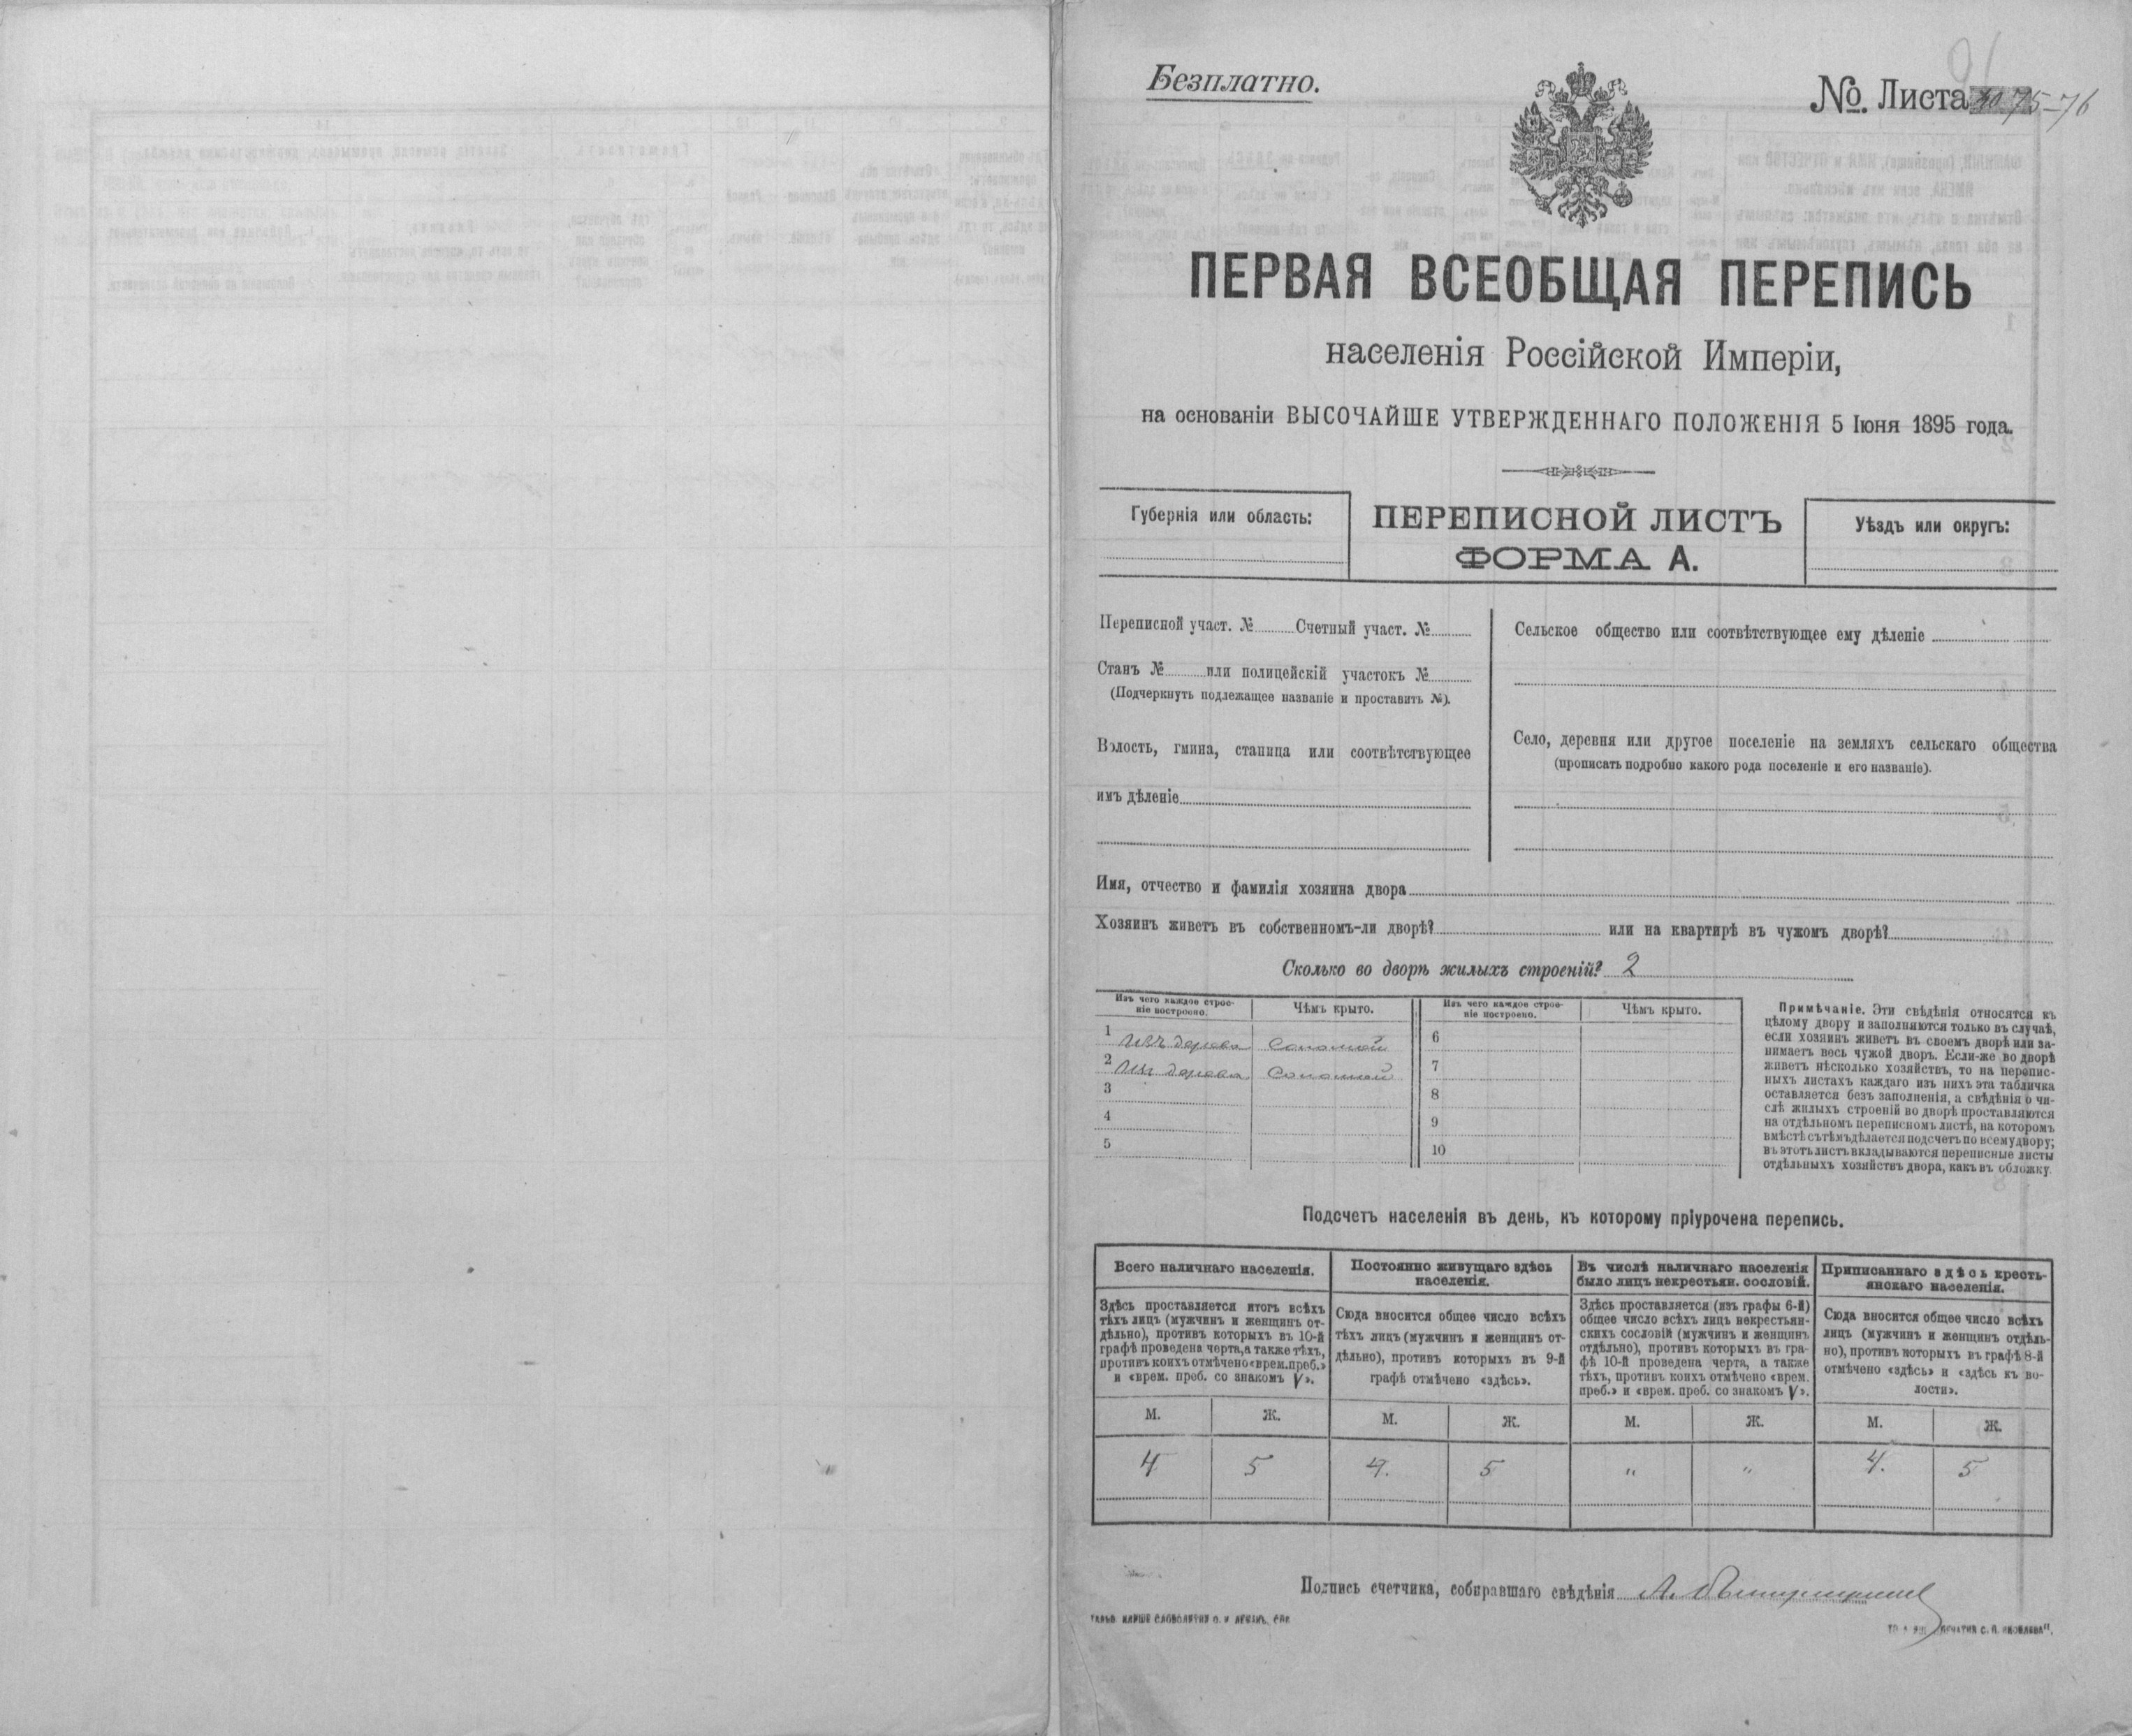 91
Безплатно.
№. Листа 75–76
ПЕРВАЯ ВСЕОБЩАЯ ПЕРЕПИСЬ
населенія Россійской Имперіи,
на основаніи ВЫСОЧАЙШЕ УТВЕРЖДЕННАГО ПОЛОЖЕНІЯ 5 Іюня 1895 года.
Губернія или область:
ПЕРЕПИСНОЙ ЛИСТЪ
ФОРМА А.
Уѣздъ или округъ:
Переписной участ. № Счетный участ. №
Станъ № или полицейскій участокъ №
(Подчеркнуть подлежащее названіе и проставить №).
Волость, гмина, станица или соотвѣтствующее
имъ дѣленіе
Сельское общество или соотвѣтствующее ему дѣленіе
Село, деревня или другое поселеніе на земляхъ сельскаго общества
(прописать подробно какого рода поселеніе и его названіе).
Имя, отчество и фамилія хозяина двора
Хозяинъ живетъ въ собственномъ-ли дворѣ? или на квартирѣ въ чужомъ дворѣ?
Сколько во дворѣ жилыхъ строеній? 2
Изъ чего каждое строе-
ніе построено.
Чѣмъ крыто.
Изъ чего каждое строе-
ніе построено.
Чѣмъ крыто.
1 Изъ дерева Соломой
2 Изъ дерева Соломой
3
4
5
6
7
8
9
10
Примѣчаніе. Эти свѣдѣнія относятся къ
цѣлому двору и заполняются только въ случаѣ,
если хозяинъ живетъ въ своемъ дворѣ или за-
нимаетъ весь чужой дворъ. Если-же во дворѣ
живетъ нѣсколько хозяйствъ, то на перепис-
ныхъ листахъ каждаго изъ нихъ эта табличка
оставляется безъ заполненія, а свѣдѣнія о чи-
слѣ жилыхъ строеній во дворѣ проставляются
на отдѣльномъ переписномъ листѣ, на которомъ
вмѣстѣ съ тѣмъ дѣлается подсчетъ по всему двору;
въ этотъ листъ вкладываются переписные листы
отдѣльныхъ хозяйствъ двора, какъ въ обложку.
Подсчетъ населенія въ день, къ которому пріурочена перепись.
Всего наличнаго населенія.
Здѣсь проставляется итогъ всѣхъ
тѣхъ лицъ (мужчинъ и женщинъ от-
дѣльно), противъ которыхъ въ 10-й
графѣ проведена черта, а также тѣхъ,
противъ коихъ отмѣчено «врем. преб.»
и «врем. преб. со знакомъ V».
Постоянно живущаго здѣсь
населенія.
Сюда вносится общее число всѣхъ
тѣхъ лицъ (мужчинъ и женщинъ от-
дѣльно), противъ которыхъ въ 9-й
графѣ отмѣчено «здѣсь».
Въ числѣ наличнаго населенія
было лицъ некрестьян. сословій.
Здѣсь проставляется (изъ графы 6-й)
общее число всѣхъ лицъ некрестьян-
скихъ сословій (мужчинъ и женщинъ
отдѣльно), противъ которыхъ въ гра-
фѣ 10-й проведена черта, а также
тѣхъ, противъ коихъ отмѣчено «врем.
преб.» и «врем. преб. со знакомъ V».
Приписаннаго здѣсь кресть-
янскаго населенія.
Сюда вносится общее число всѣхъ
лицъ (мужчинъ и женщинъ отдѣль-
но), противъ которыхъ въ графѣ 8-й
отмѣчено «здѣсь» и «здѣсь къ во-
лости».
М. Ж. М. Ж. М. Ж. М. Ж.
4 5 4. 5 „ „ 4. 5
Подпись счетчика, собиравшаго свѣдѣнія